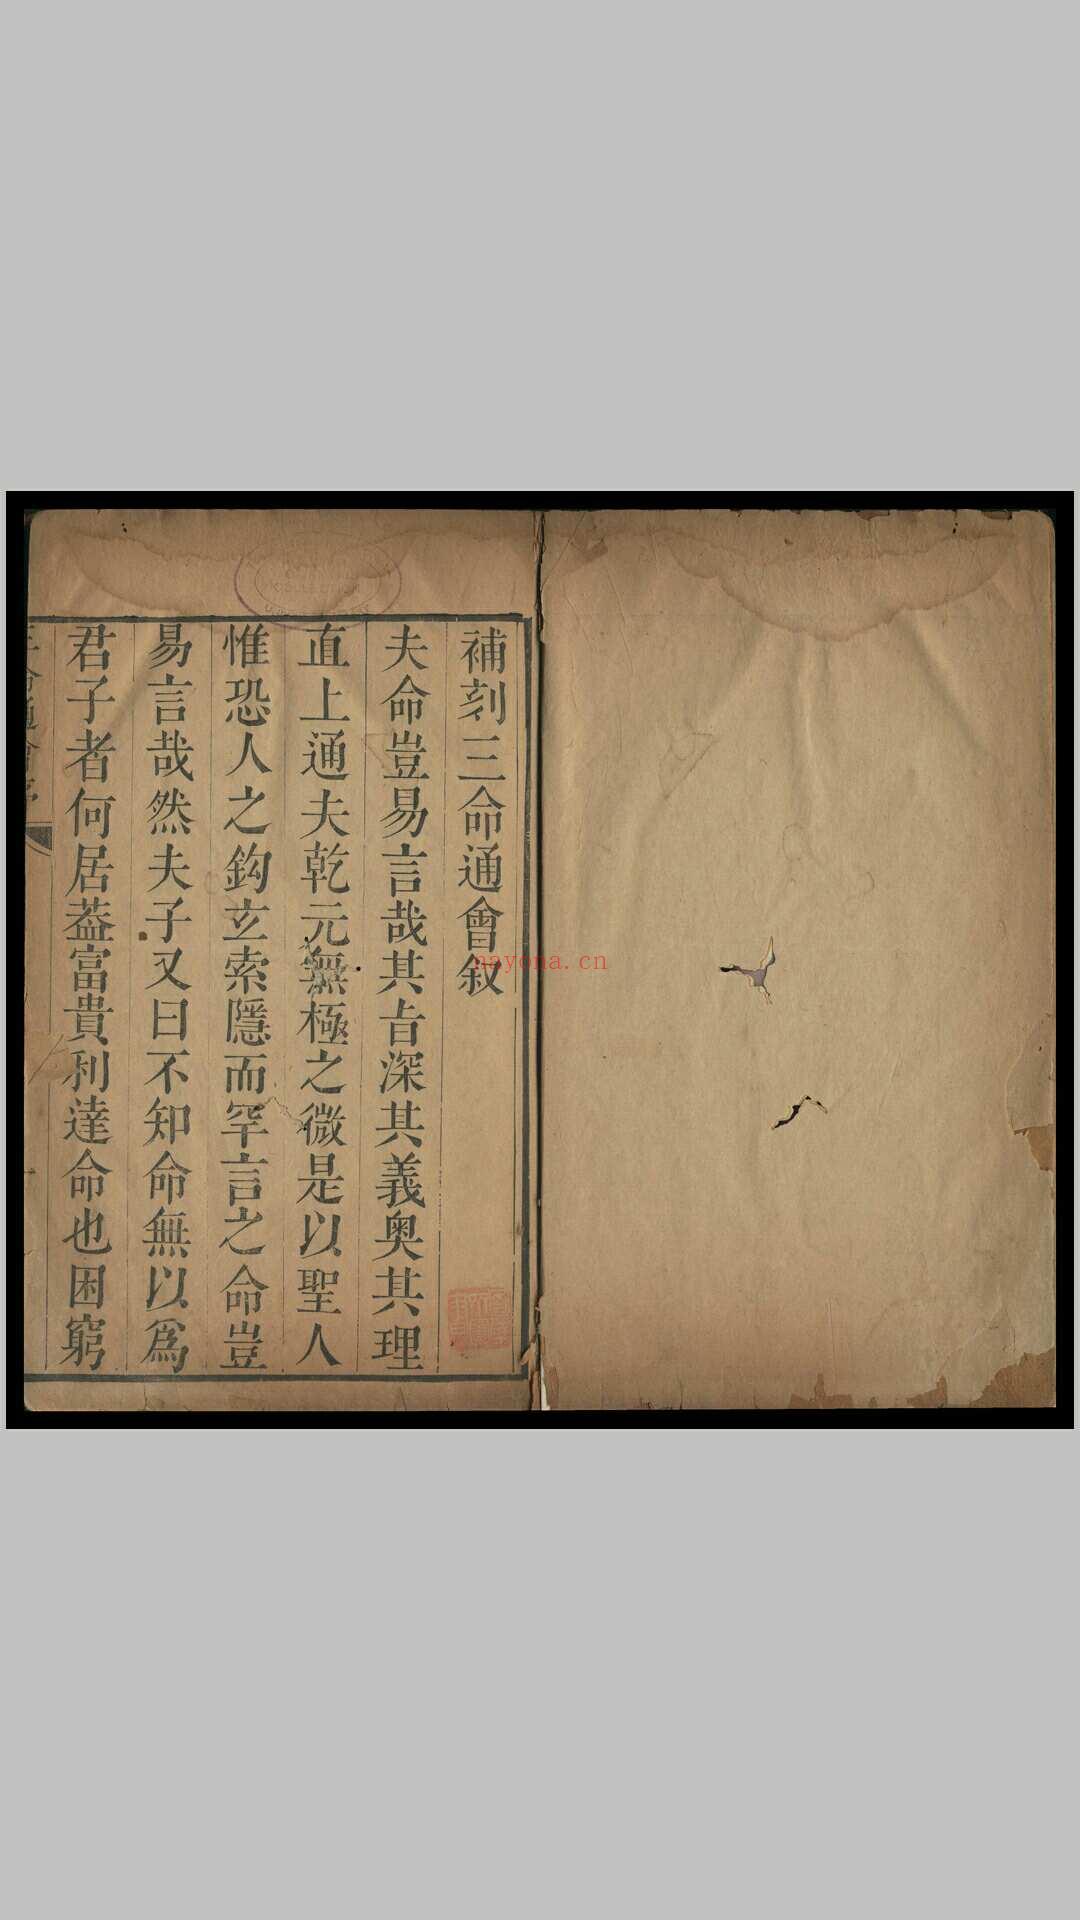 補刻三命通會叙
夫命豈易言哉其㫖深其義奥其理
直上通夫乾元無極之微是以聖人
惟恐人之鈎玄索隱而罕言之命豈
易言哉然夫子又曰不知命無以爲
君子者何居葢富貴利達命也困窮
三命通會序
nayona.cn